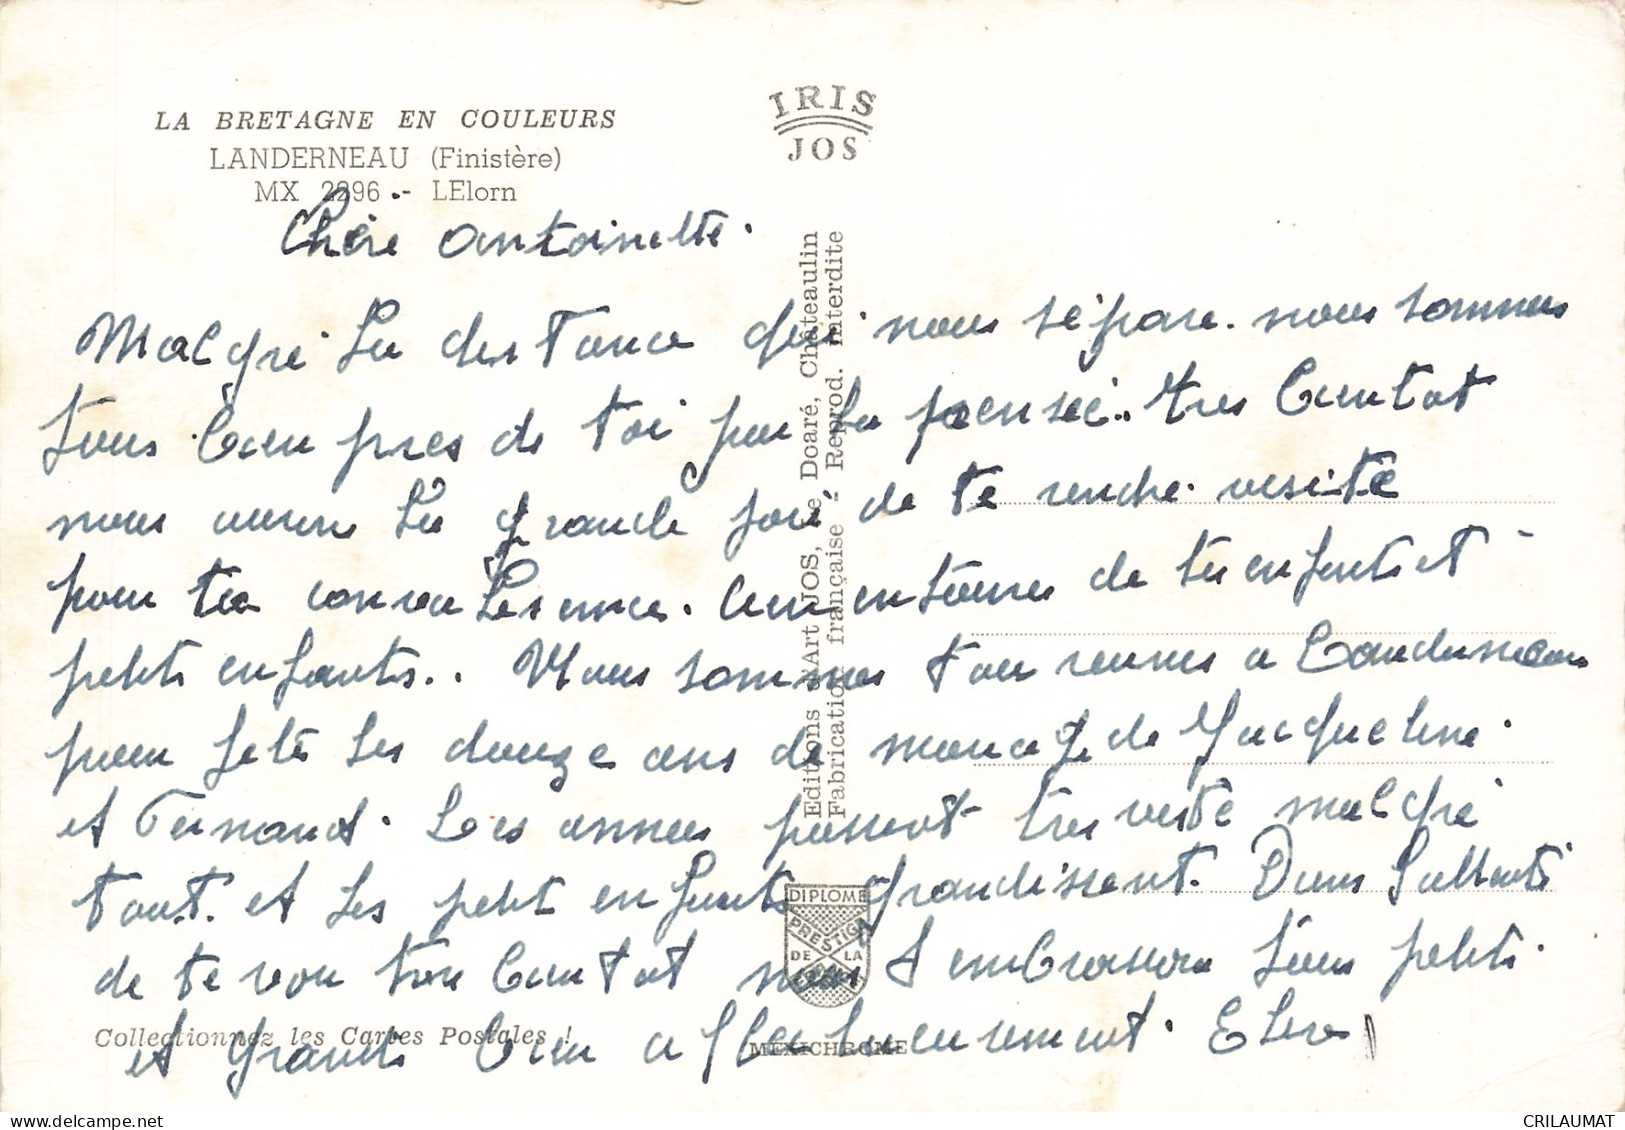 LA BRETAGNE EN COULEURS
LANDERNEAU (Finistère)
MX 2296 - LElorn
IRIS
JOS
Chère Antoinette.
Malgré La distance qui nous sépare. nous sommes
tous bien près de toi par la pensée.. très bientot
nous aurons La grande joie de te rendre visite
pour ta convalesence. bien entourée de tes enfants et
petits enfants.. Nous sommes tous réunies a Landerneau
pour fété Les douze ans de mariage de Jacqueline.
et Fernand. Les années passent très vite malgré
tout. et Les petit enfants grandissent. Dans l'attente
de te voir très bientot nous t embrassons tous petits
et grands bien affectueusement. Elisa
Editions d'Art JOS, Le Doaré, Châteaulin
Fabrication française - Reprod. interdite
DIPLOME
PRESTIGE
DE LA
FRANCE
Collectionnez les Cartes Postales !
MEXICHROME
delcampe.net
CRILAUMAT